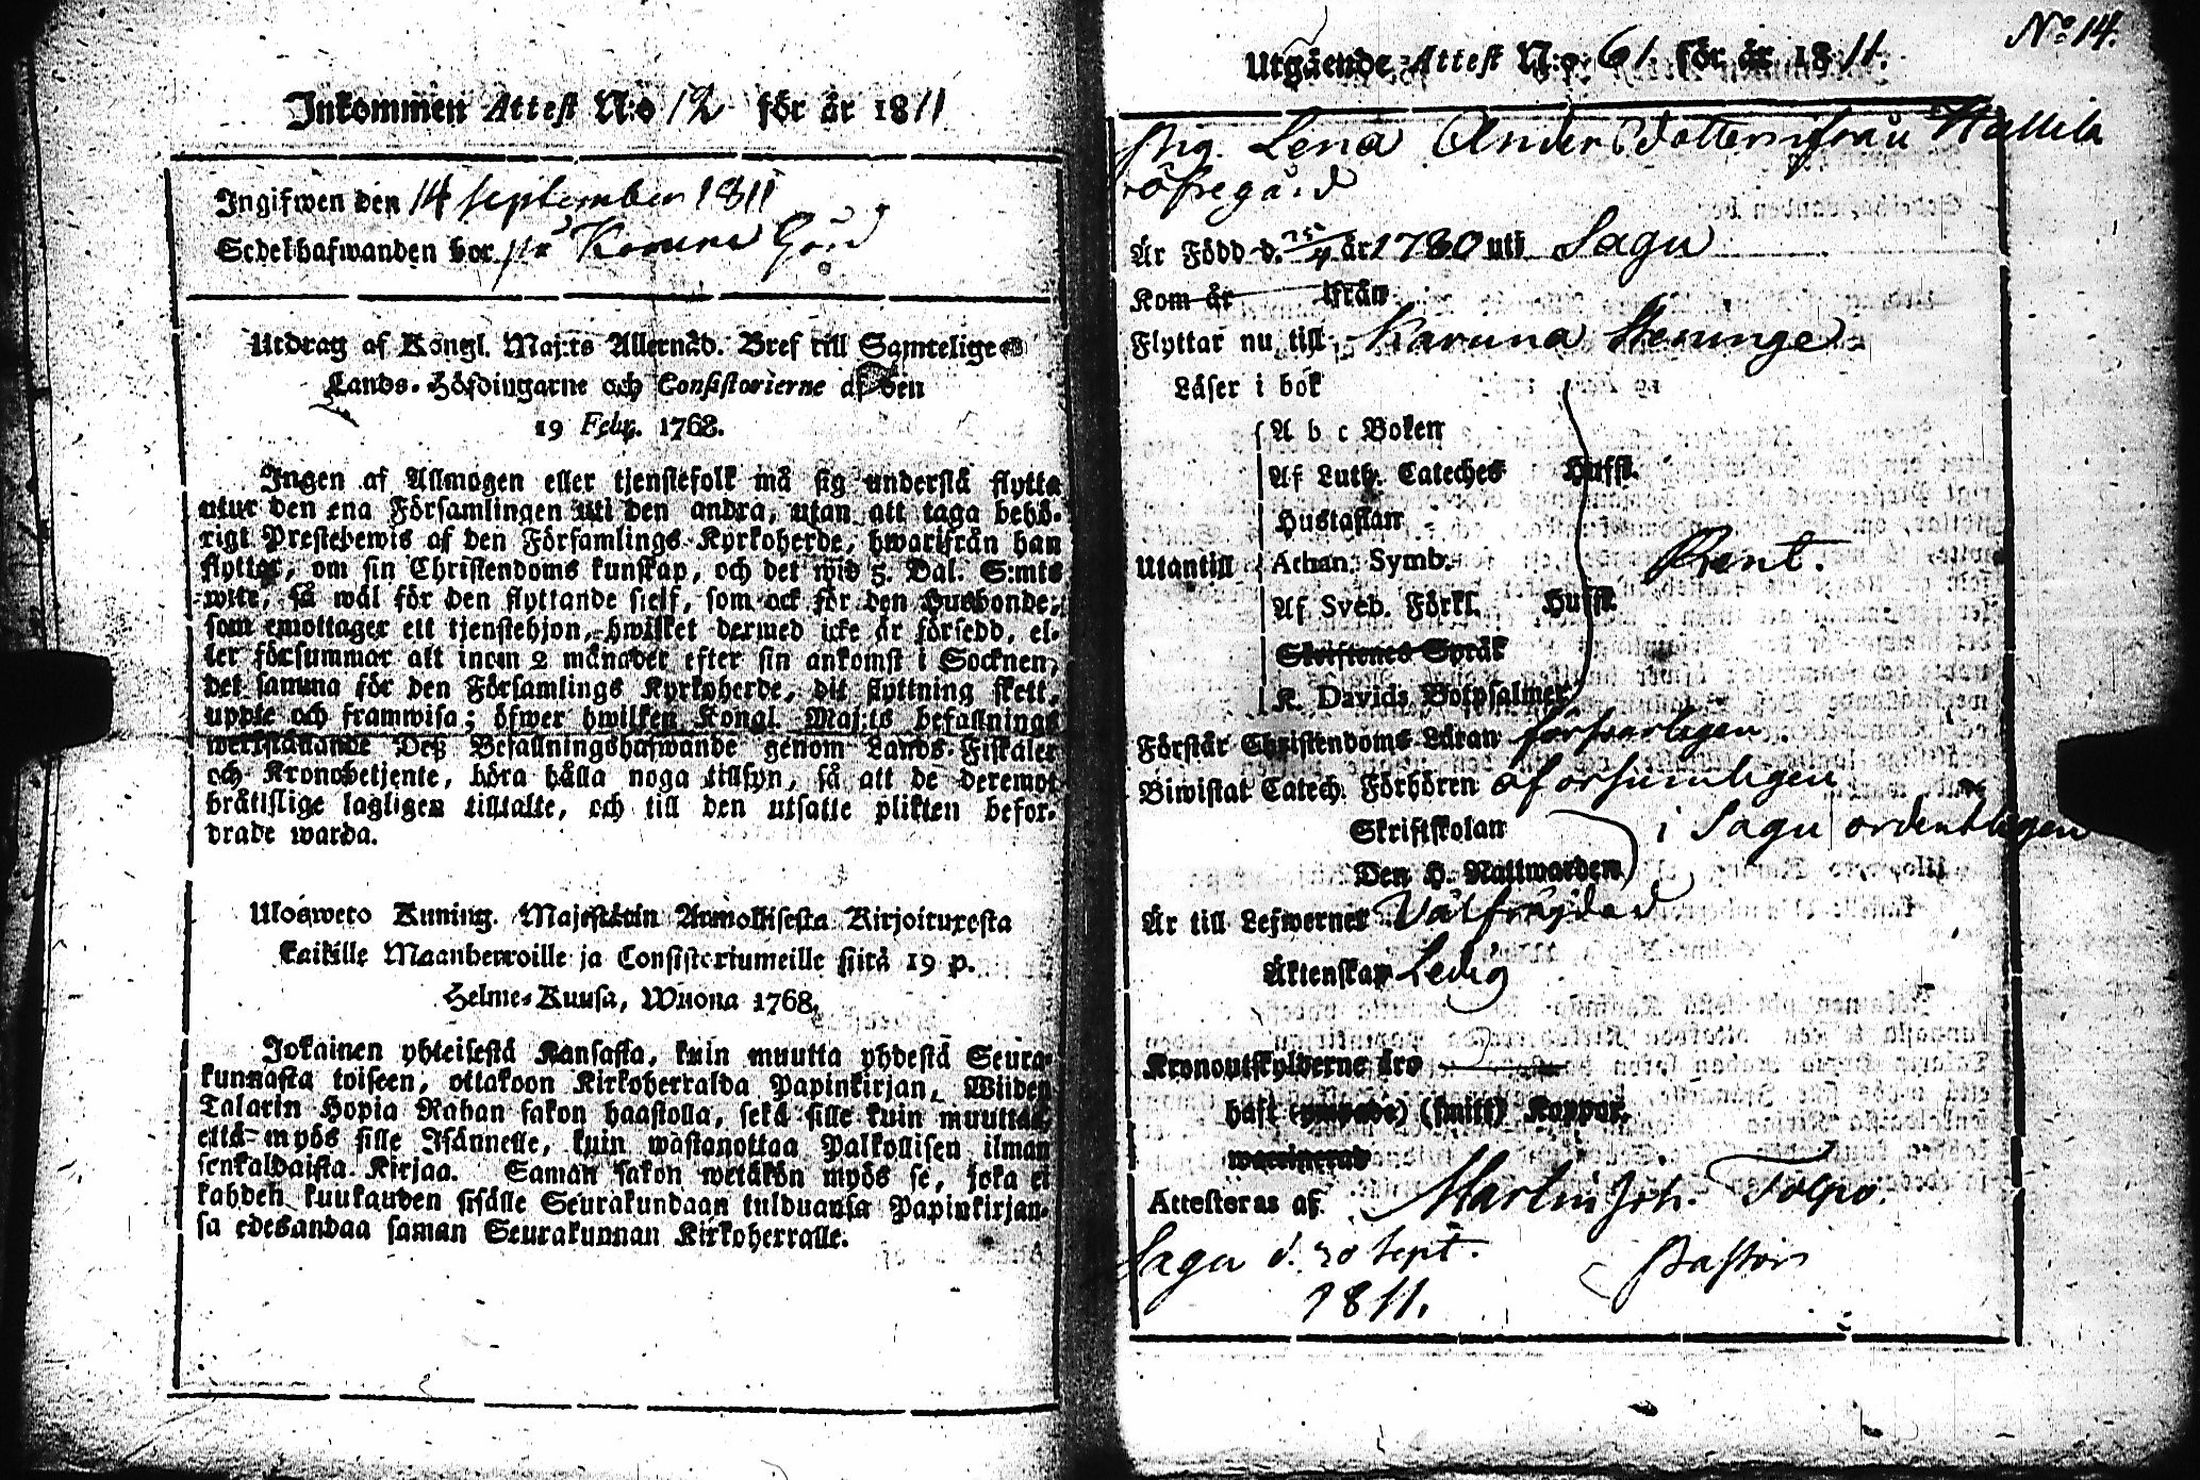 Inkommen Attest N:o 12 för år 1811
Ingifwen den 14 September 1811
Sedelhafwanden bor på Karuna Gård
Utdrag af Kongl. Maj:ts Allernåd. Bref till Samtelige
Lands-Höfdingarne och Consistorierne af den
19 Febr. 1768.
Ingen af Allmogen eller tjenstefolk må sig understå flytta
utur den ena Församlingen uti den andra, utan att taga behö-
rigt Prestebewis af den Församlings Kyrkoherde, hwarifrån han
flyttar, om sin Christendoms kunskap, och det wid 5. Dal. S:mts
wite, så wäl för den flyttande sielf, som ock för den Husbonde,
som emottager ett tjenstehjon, hwilket dermed icke är försedd, el-
ler försummar att inom 2 månader efter sin ankomst i Socknen,
det samma för den Församlings Kyrkoherde, dit flyttning skett,
uppte och framwisa; öfwer hwilken Kongl. Maj:ts befallnings
werkställande Deß Befallningshafwande genom Lands-Fiskaler
och Kronobetjente, böra hålla noga tillsyn, så att de deremot
bråtislige lagligen tilltalte, och till den utsatte plikten befor-
drade warda.
Ulosweto Kuning. Majestätin Armollisesta Kirjoituxesta
kaikille Maanherroille ja Consistoriumeille siitä 19 p.
Helme-Kuusa, Wuona 1768.
Jokainen yhteisestä Kansasta, kuin muutta yhdestä Seura-
kunnasta toiseen, ottakoon Kirkoherralda Papinkirjan, Wiiden
Talarin Hopia Rahan sakon haastolla, sekä sille kuin muuttaa,
että myös sille Isännelle, kuin wastanottaa Palkollisen ilman
senkaldaista Kirjaa. Saman sakon wetäkön myös se, joka ei
kahden kuukauden sisälle Seurakundaan tulduansa Papinkirjan-
sa edesandaa saman Seurakunnan Kirkoherralle.
No 14.
Utgående Attest N:o 61 för år 1811.
Pig. Lena Anders Dotter ifrån Hallila
öfregård
Är Född d. 25/4 år 1780 uti Sagu
Kom år ifrån
Flyttar nu till Karuna Steninge
Läser i bok
A b c Boken
Af Luth. Cateches Hufst.
Hustaflan
Utantill Athan. Symb. Rent.
Af Sveb. Förkl. Hufst.
Skriftenes Språk
K. Davids Botpsalmer
Förstår Christendoms Läran försvarligen
Biwistat Catech. Förhören oförsumligen
Skriftskolan i Sagu ordentligen
Den H. Nattwarden
Är till Lefwernet Välfräjdad
Äktenskap Ledig
Kronoutskylderne äro
haft (ympade) (smitt) Koppor.
Attesteras af Martin Joh. Tolpo.
Sagu d. 20 Sept. Pastor
1811.